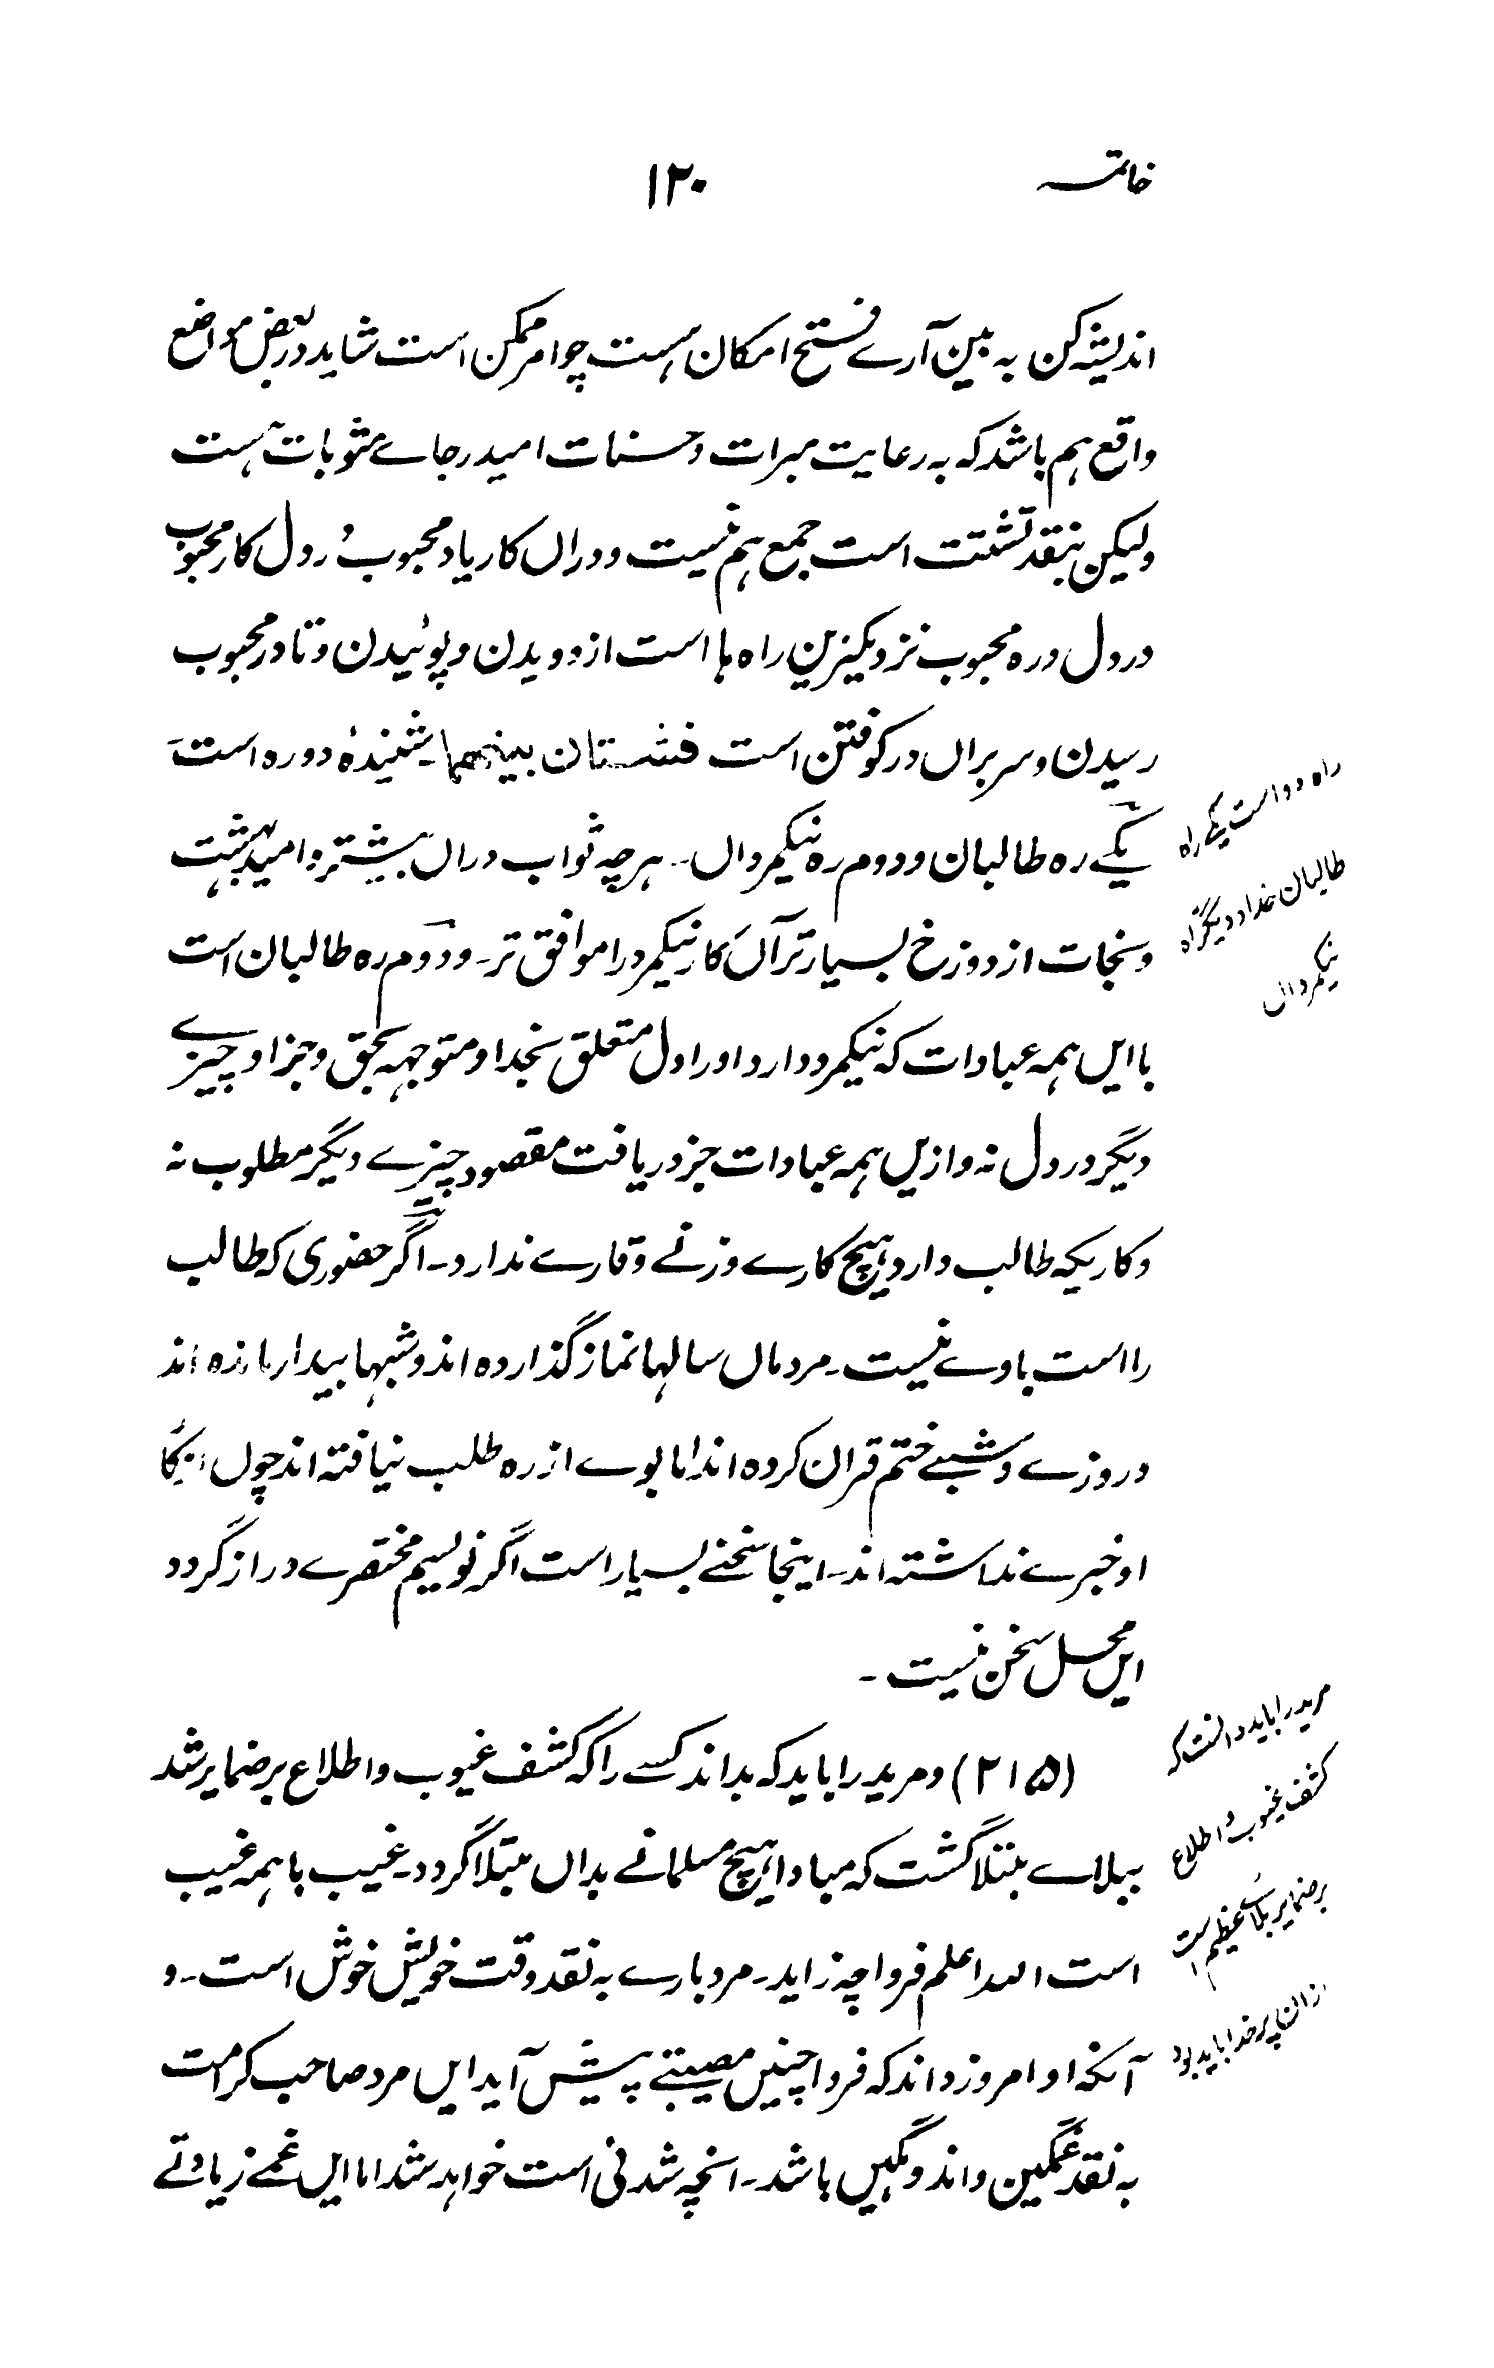 خاتمہ
۱۲۰
اندیشہ کن بہ بین آرے فتح امکان ہست چو امر ممکن است شاید در بعض مواضع
واقع ہم باشد کہ بہ رعایت مبرات و حسنات امید رجاے مثوبات ہست
ولیکن بنقد تشتت است جمع ہم نیست و دراں کار یاد محبوب و رول کار محبوب
در دل و رہ محبوب نزدیکترین راہ ہا است از دویدن و پوئیدن و تا در محبوب
رسیدن و سر براں در کوفتن است فشتان بینهما۔ شنیدۂ دو رہ است
یکے رہ طالبان و دوم رہ نیکمرداں۔ ہرچہ ثواب دراں بیشتر و امید بہشت
و نجات از دوزخ بسیار تر آں کار نیکمرد را موافق تر۔ و دوم رہ طالبان است
با ایں ہمہ عبادات کہ نیکمرد دارد او را دل متعلق بخدا و متوجہہ بحق و جز او چیزے
دیگر در دل نہ و ازیں ہمہ عبادات جز دریافت مقصود چیزے دیگر مطلوب نہ
و کاریکہ طالب دارد ہیچ کارے وزنے و قارے ندارد۔ اگر حضوری کہ طالب
را است باوے نیست۔ مردماں سالہا نماز گذاردہ اند و شبہا بیدار ماندہ اند
و روزے و شبے ختم قران کردہ اند اما بوے از رہ طلب نیافتہ اند چوں
او خبرے نداشتہ اند۔ اینجا سخنے بسیار است اگر نویسیم مختصرے دراز گردد
ایں محل سخن نیست۔
(۲۱۵) و مرید را باید کہ بداند کسے را کہ کشف غیوب و اطلاع بر ضمایر شد
ببلاے مبتلا گشت کہ مبادا ہیچ مسلمانے بداں مبتلا گردد۔ غیب باہمہ غیب
است اللہ اعلم فردا چہ زاید۔ مرد بارے بہ نقد وقت خویش خوش است۔ و
آنکہ او امروز داند کہ فردا چنیں مصیبتے پیش آید ایں مرد صاحب کرامت
بہ نقد غمگین و اندوہگیں باشد۔ انچہ شدنی است خواہد شد اما ایں غمے زیادتے
راہ دو است یکے راہ
طالبان خدا و دیگر راہ
نیکمرداں
مرید را باید دانست کہ
کشف غیوب و اطلاع
بر ضمایر بلاے عظیم است
ازان پر خدا باید بود